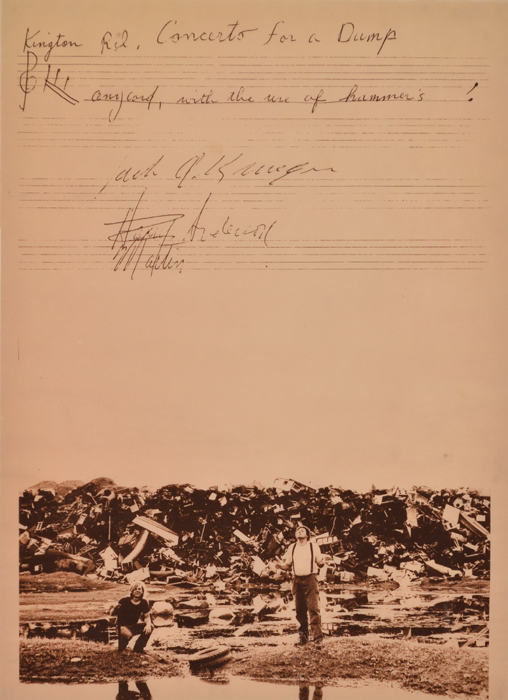 Kington Rd. Concerto for a Dump
anycord, with the use of hammer's !
Jack O. Krueger
Harry. Anderson
Martin